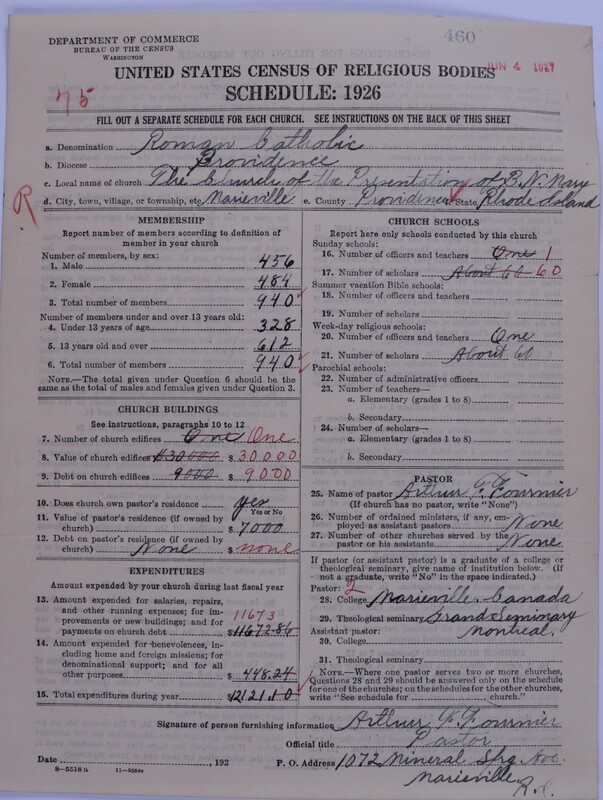 DEPARTMENT OF COMMERCE
BUREAU OF THE CENSUS
WASHINGTON
460
JUN 4 1927
UNITED STATES CENSUS OF RELIGIOUS BODIES
SCHEDULE: 1926
75
FILL OUT A SEPARATE SCHEDULE FOR EACH CHURCH. SEE INSTRUCTIONS ON THE BACK OF THIS SHEET
a. Denomination Roman Catholic
b. Diocese Providence
c. Local name of church The Church of the Presentation of B. V. Mary
R
d. City, town, village, or township, etc. Marieville e. County Providence State Rhode Island
MEMBERSHIP
Report number of members according to definition of member in your church
Number of members, by sex:
1. Male 456
2. Female 484
3. Total number of members 940
Number of members under and over 13 years old:
4. Under 13 years of age 328
5. 13 years old and over 612
6. Total number of members 940
NOTE.—The total given under Question 6 should be the same as the total of males and females given under Question 3.
CHURCH BUILDINGS
See instructions, paragraphs 10 to 12
7. Number of church edifices One One
8. Value of church edifices $30000 $ 30000
9. Debt on church edifices 9000 $ 9000
10. Does church own pastor's residence yes
Yes or No
11. Value of pastor's residence (if owned by church) $ 7000
12. Debt on pastor's residence (if owned by church) None $ none
EXPENDITURES
Amount expended by your church during last fiscal year
13. Amount expended for salaries, repairs, and other running expenses; for improvements or new buildings; and for payments on church debt 11673 $ 11672.86
14. Amount expended for benevolences, including home and foreign missions; for denominational support; and for all other purposes $ 448.24
15. Total expenditures during year $ 12121.10
CHURCH SCHOOLS
Report here only schools conducted by this church
Sunday schools:
16. Number of officers and teachers One 1
17. Number of scholars About 60 60
Summer vacation Bible schools:
18. Number of officers and teachers
19. Number of scholars
Week-day religious schools:
20. Number of officers and teachers One
21. Number of scholars About 60
Parochial schools:
22. Number of administrative officers
23. Number of teachers—
a. Elementary (grades 1 to 8)
b. Secondary
24. Number of scholars—
a. Elementary (grades 1 to 8)
b. Secondary
PASTOR
25. Name of pastor Arthur F. Fournier
(If church has no pastor, write "None")
26. Number of ordained ministers, if any, employed as assistant pastors None
27. Number of other churches served by the pastor or his assistants None
If pastor (or assistant pastor) is a graduate of a college or theological seminary, give name of institution below. (If not a graduate, write "No" in the space indicated.)
Pastor: 2
28. College Marieville Canada
29. Theological seminary Grand Seminary
Assistant pastor: Montreal.
30. College
31. Theological seminary
NOTE.—Where one pastor serves two or more churches, Questions 28 and 29 should be answered only on the schedule for one of the churches; on the schedules for the other churches, write "See schedule for church."
Signature of person furnishing information Arthur F. Fournier
Official title Pastor
Date , 192 P. O. Address 1072 Mineral Spg. Ave.
8—5518a 11—9554c
Marieville, R.I.